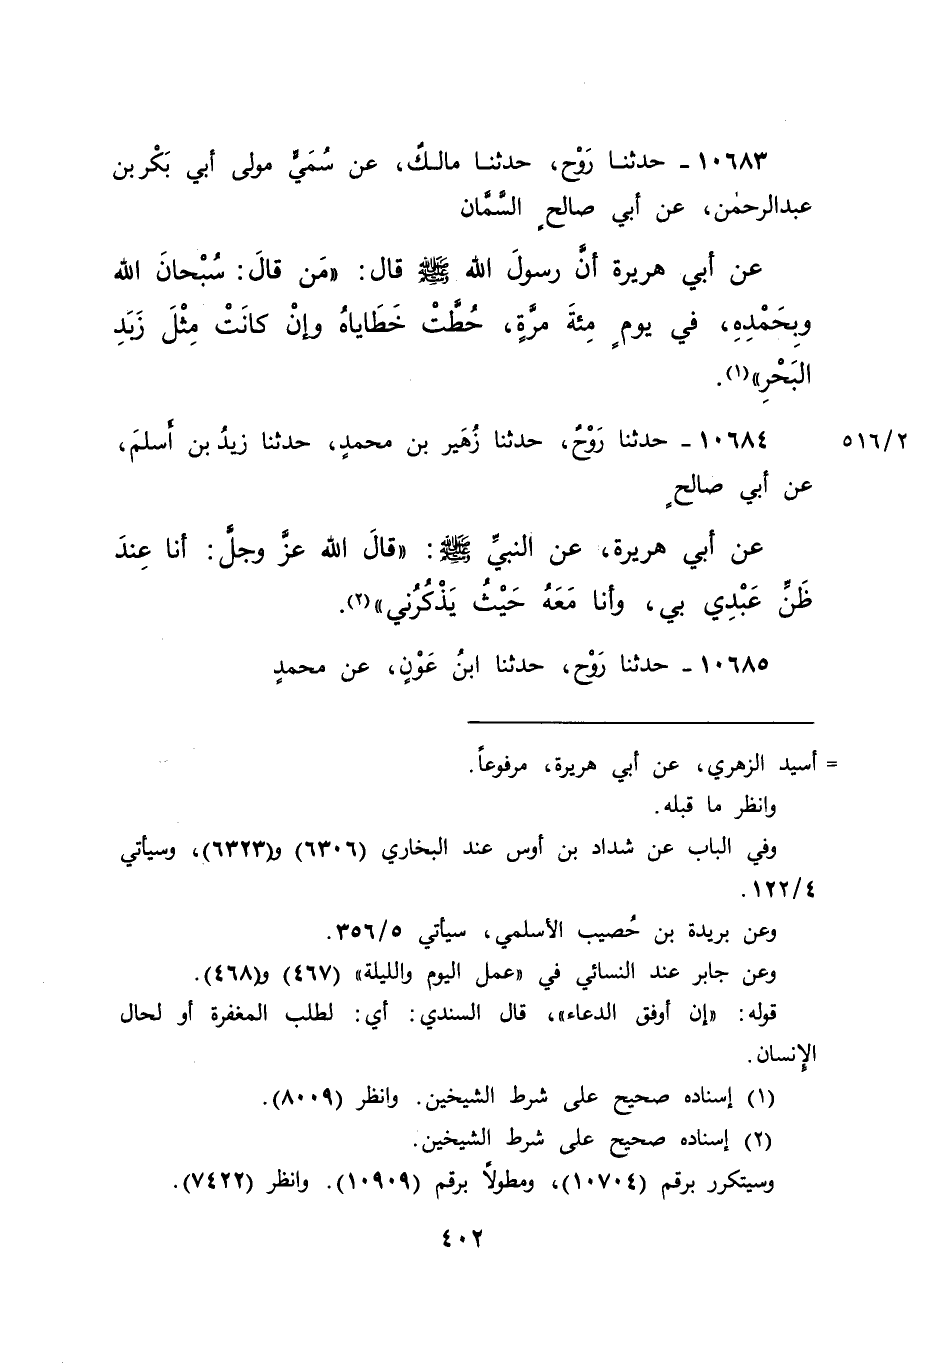 ١٠٦٨٣ - حدثنـا رَوْح، حدثنـا مالـكٌ، عن سُمَيٍّ مولى أبي بَكْر بن
عبدالرحمٰن، عن أبي صالحٍ السَّمَّان
عن أبي هريرة أنَّ رسولَ الله ﷺ قال: «مَن قالَ: سُبْحانَ الله
وبِحَمْدِهِ، في يومٍ مِئةَ مرَّةٍ، حُطَّتْ خَطَاياهُ وإنْ كانَتْ مِثْلَ زَبَدِ
البَحْرِ»(١).
١٠٦٨٤ - حدثنا رَوْحٌ، حدثنا زُهَير بن محمدٍ، حدثنا زيدُ بن أَسلمَ، ٥١٦/٢
عن أبي صالحٍ
عن أبي هريرة، عن النبيِّ ﷺ: «قالَ الله عزَّ وجلَّ: أنا عِندَ
ظَنِّ عَبْدِي بي، وأنا مَعَهُ حَيْثُ يَذْكُرُني»(٢).
١٠٦٨٥ - حدثنا رَوْح، حدثنا ابنُ عَوْنٍ، عن محمدٍ
= أسيد الزهري، عن أبي هريرة، مرفوعاً.
وانظر ما قبله.
وفي الباب عن شداد بن أوس عند البخاري (٦٣٠٦) و(٦٣٢٣)، وسيأتي
١٢٢/٤.
وعن بريدة بن حُصيب الأسلمي، سيأتي ٣٥٦/٥.
وعن جابر عند النسائي في «عمل اليوم والليلة» (٤٦٧) و(٤٦٨).
قوله: «إن أوفق الدعاء»، قال السندي: أي: لطلب المغفرة أو لحال
الإنسان.
(١) إسناده صحيح على شرط الشيخين. وانظر (٨٠٠٩).
(٢) إسناده صحيح على شرط الشيخين.
وسيتكرر برقم (١٠٧٠٤)، ومطولاً برقم (١٠٩٠٩). وانظر (٧٤٢٢).
٤٠٢